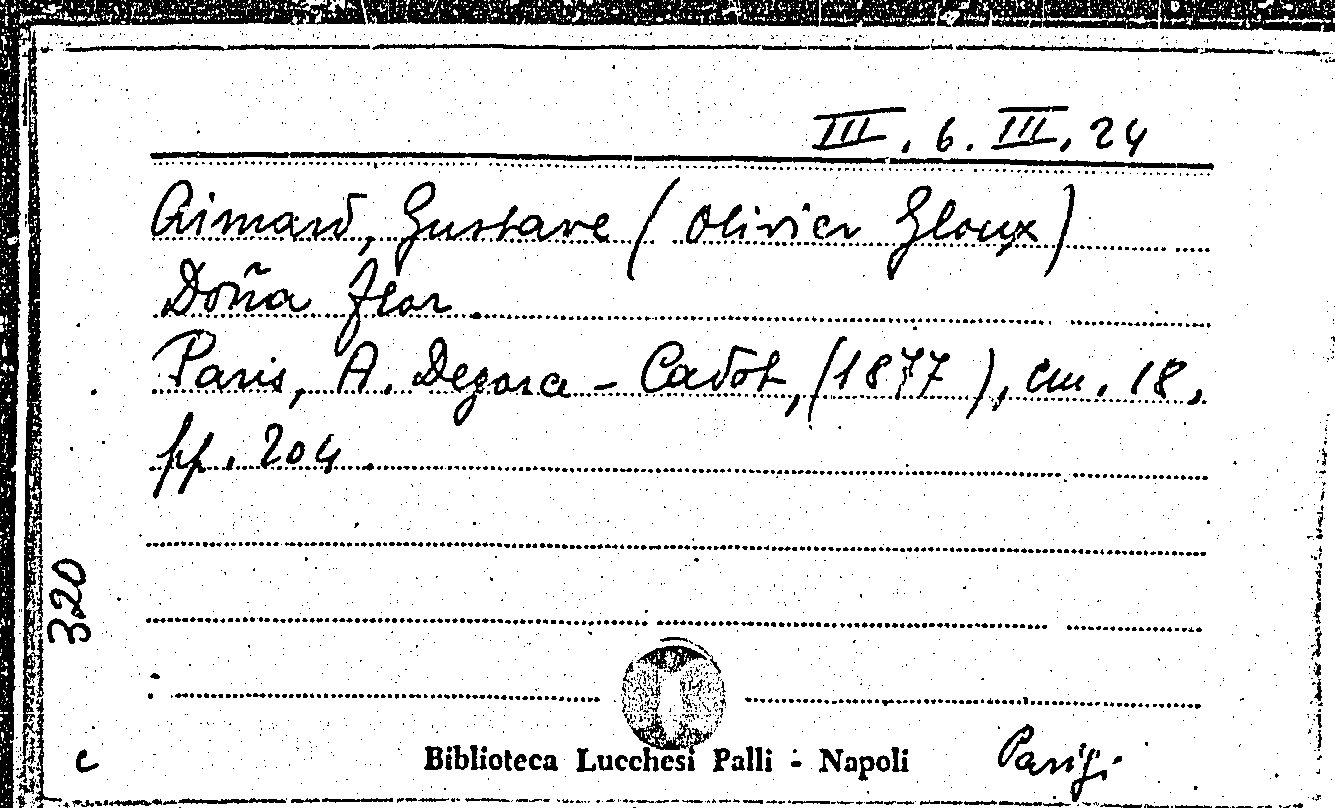 III. 6. III. 24
Aimard, Gustave (Olivier Gloux)
Doña Flor.
Paris, A. Degorce - Cadot, (1877), cm. 18,
pp. 204.
320
c
Biblioteca Lucchesi Palli - Napoli
Parigi